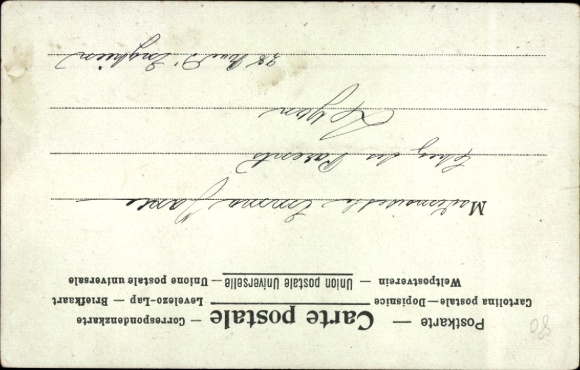 Postkarte — Carte postale — Correspondenzkarte
Cartolina postale — Dopisnice Levelezo-Lap — Briefkaart
Weltpostverein — Union postale Universelle — Unione postale universale
Mademoiselle Emma
Chez ses Parents
Lyon
Rue d'Enghien
80